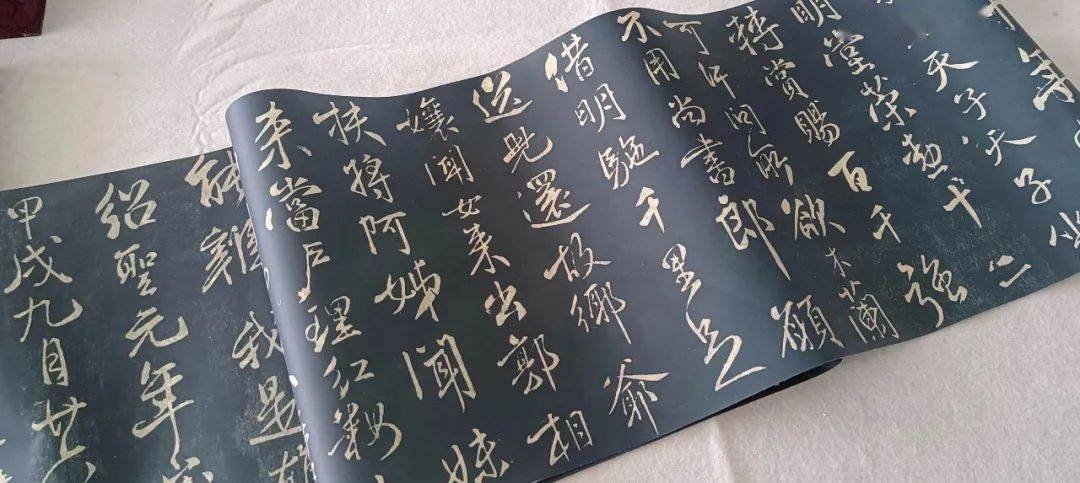 年
天子天子坐
明堂策勲十二
轉賞賜百千強
可汗問所欲木蘭
不用尚書郎願
借明駞千里足
送兒還故鄉爺
孃聞女来出郭相
扶將阿姊聞妹
来當户理紅粧
辨我是雄
紹聖元年
甲戌九月廿